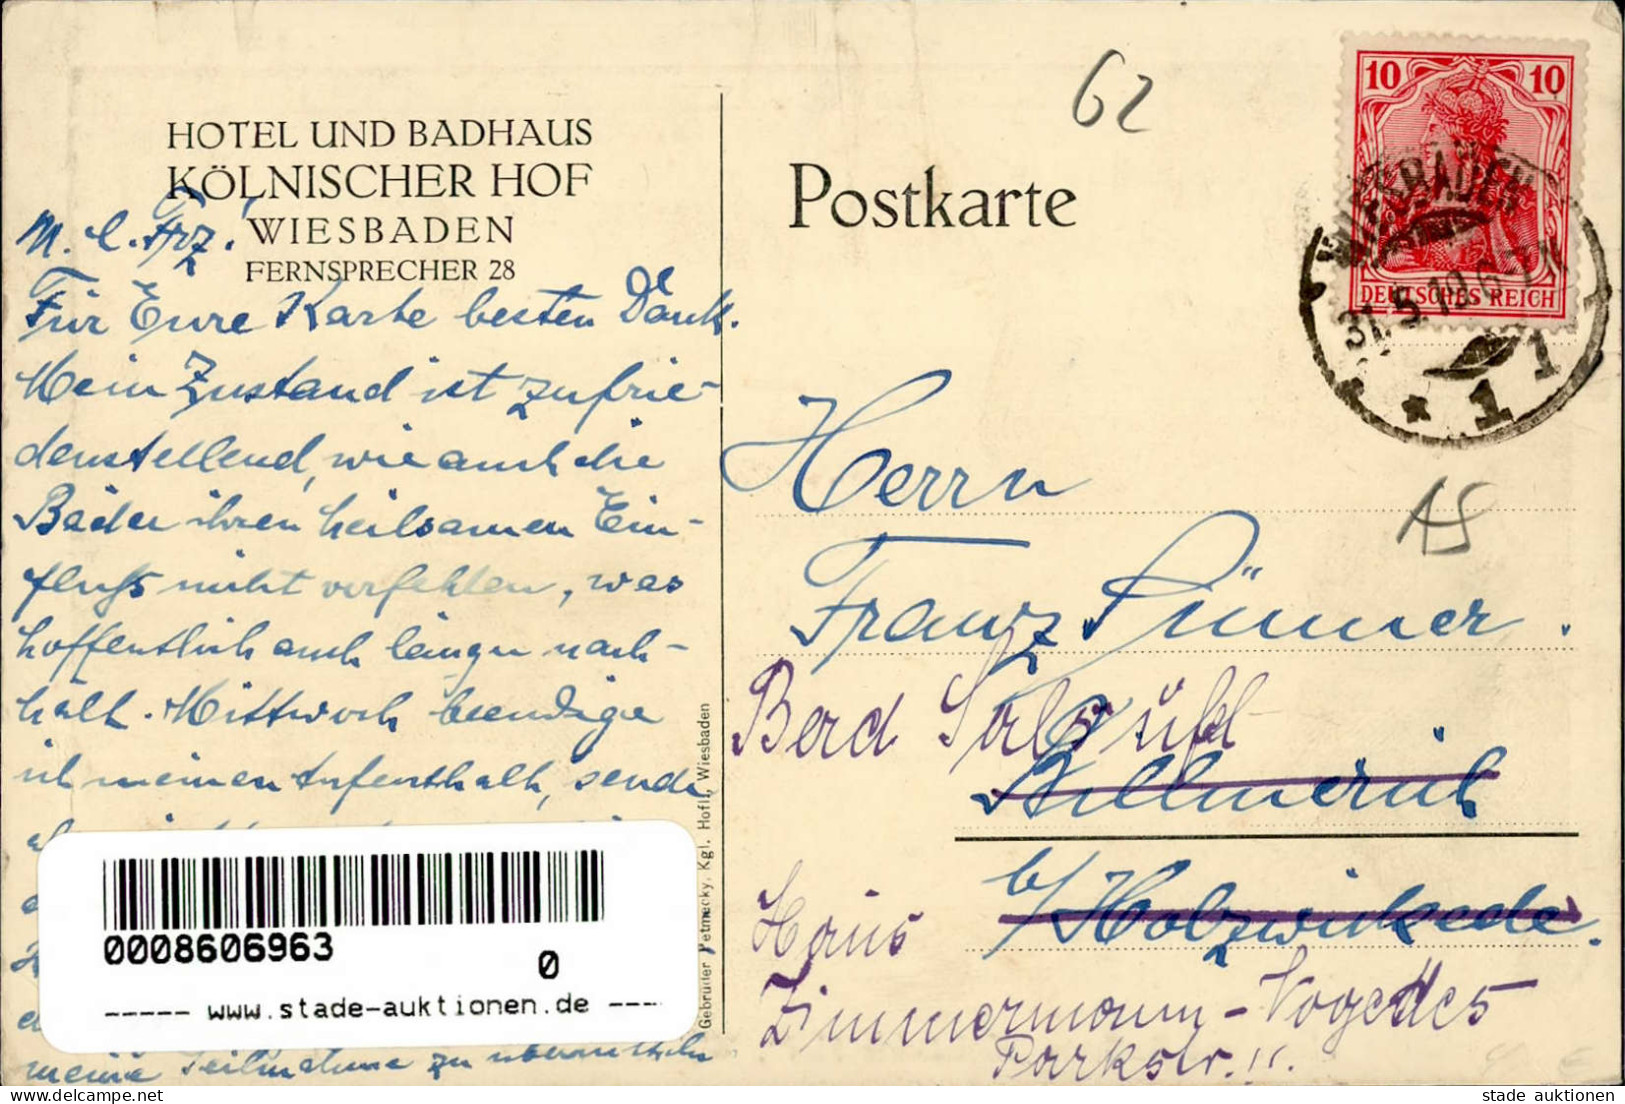 62
HOTEL UND BADHAUS
KÖLNISCHER HOF
WIESBADEN
FERNSPRECHER 28
Postkarte
10 10
DEUTSCHES REICH
WIESBADEN
31.5.19.6-7N
* 1 1
M. l. Frz!
Für Eure Karte besten Dank.
Mein Zustand ist zufrie-
denstellend, wie auch die
Bäder ihren heilsamen Ein-
fluß nicht verfehlen, was
hoffentlich auch länger nach-
hält. Mittwoch beendige
ich meinen Aufenthalt, sende
meine Teilnahme zu
Herrn
Franz
Bad Salzufl
b/ Holzwickede.
Haus
Zimmermann-Vogedes
Parkstr. 11.
Gebrüder Petmecky, Kgl. Hofl., Wiesbaden
0008606963
0
----- www.stade-auktionen.de ---
stade auktionen